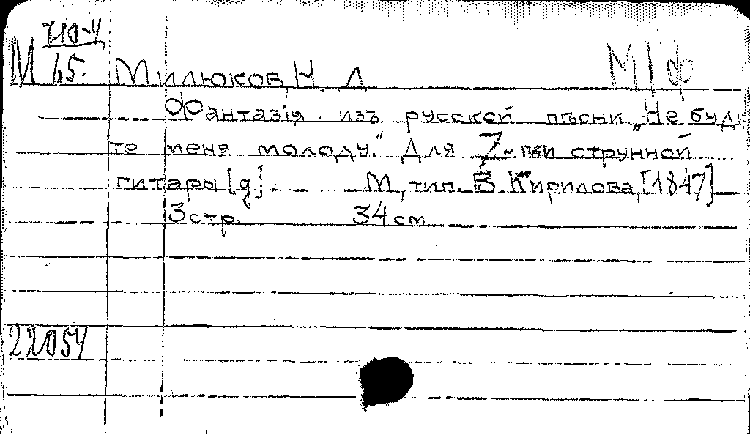 М 45. Милюков, Н. Д. М1ф
Фантазія изъ русской пѣсни „Не буди
те меня молоду." Для 7-ми струнной
гитары [g]. М., тип. В. Кирилова, [1847]
3 стр. 34 см
22054